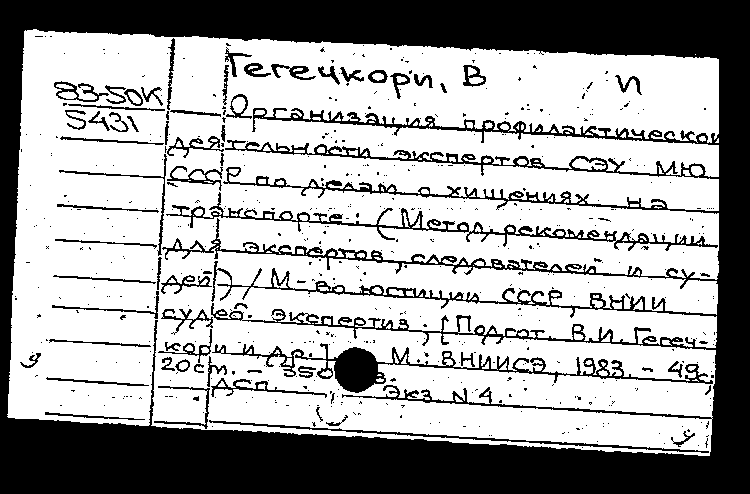 Гегечкори, В И
83-50К
5431
Организация профилактической
деятельности экспертов СЭУ МЮ
СССР по делам о хищениях на
транспорте: (Метод. рекомендации
для экспертов, следователей и су-
дей) / М-во юстиции СССР, ВНИИ
судеб. экспертиз; [Подгот. В.И. Гегеч-
кори и др.] М.: ВНИИСЭ, 1983. - 49с;
20см. - 350
ДСП. Экз. N 4.